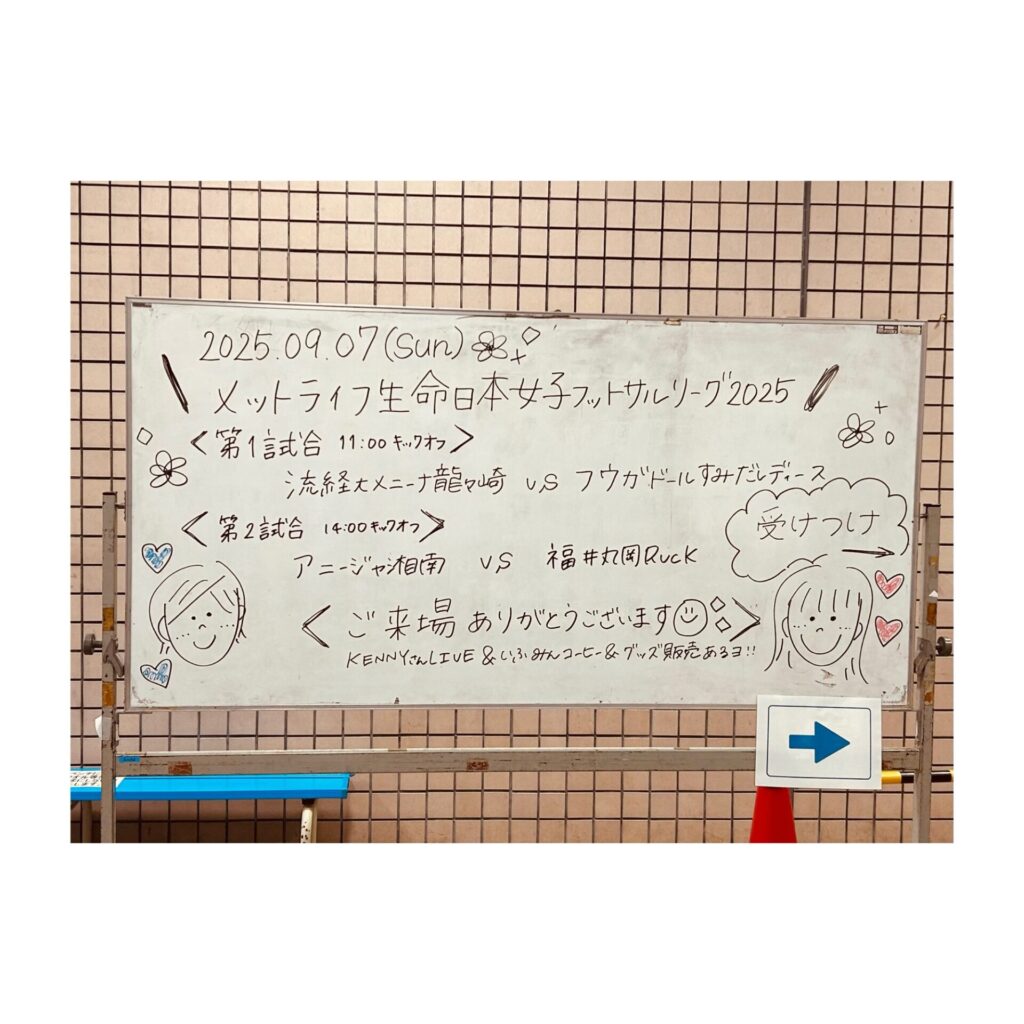 2025.09.07(Sun)
メットライフ生命日本女子フットサルリーグ2025
<第1試合 11:00 キックオフ>
流経大メニーナ龍ヶ崎 VS フウガドールすみだレディース
<第2試合 14:00 キックオフ>
アニージャ湘南 VS 福井丸岡RUCK
受けつけ
<ご来場ありがとうございます>
KENNYさんLIVE & いふみんコーヒー & グッズ販売あるヨ!!